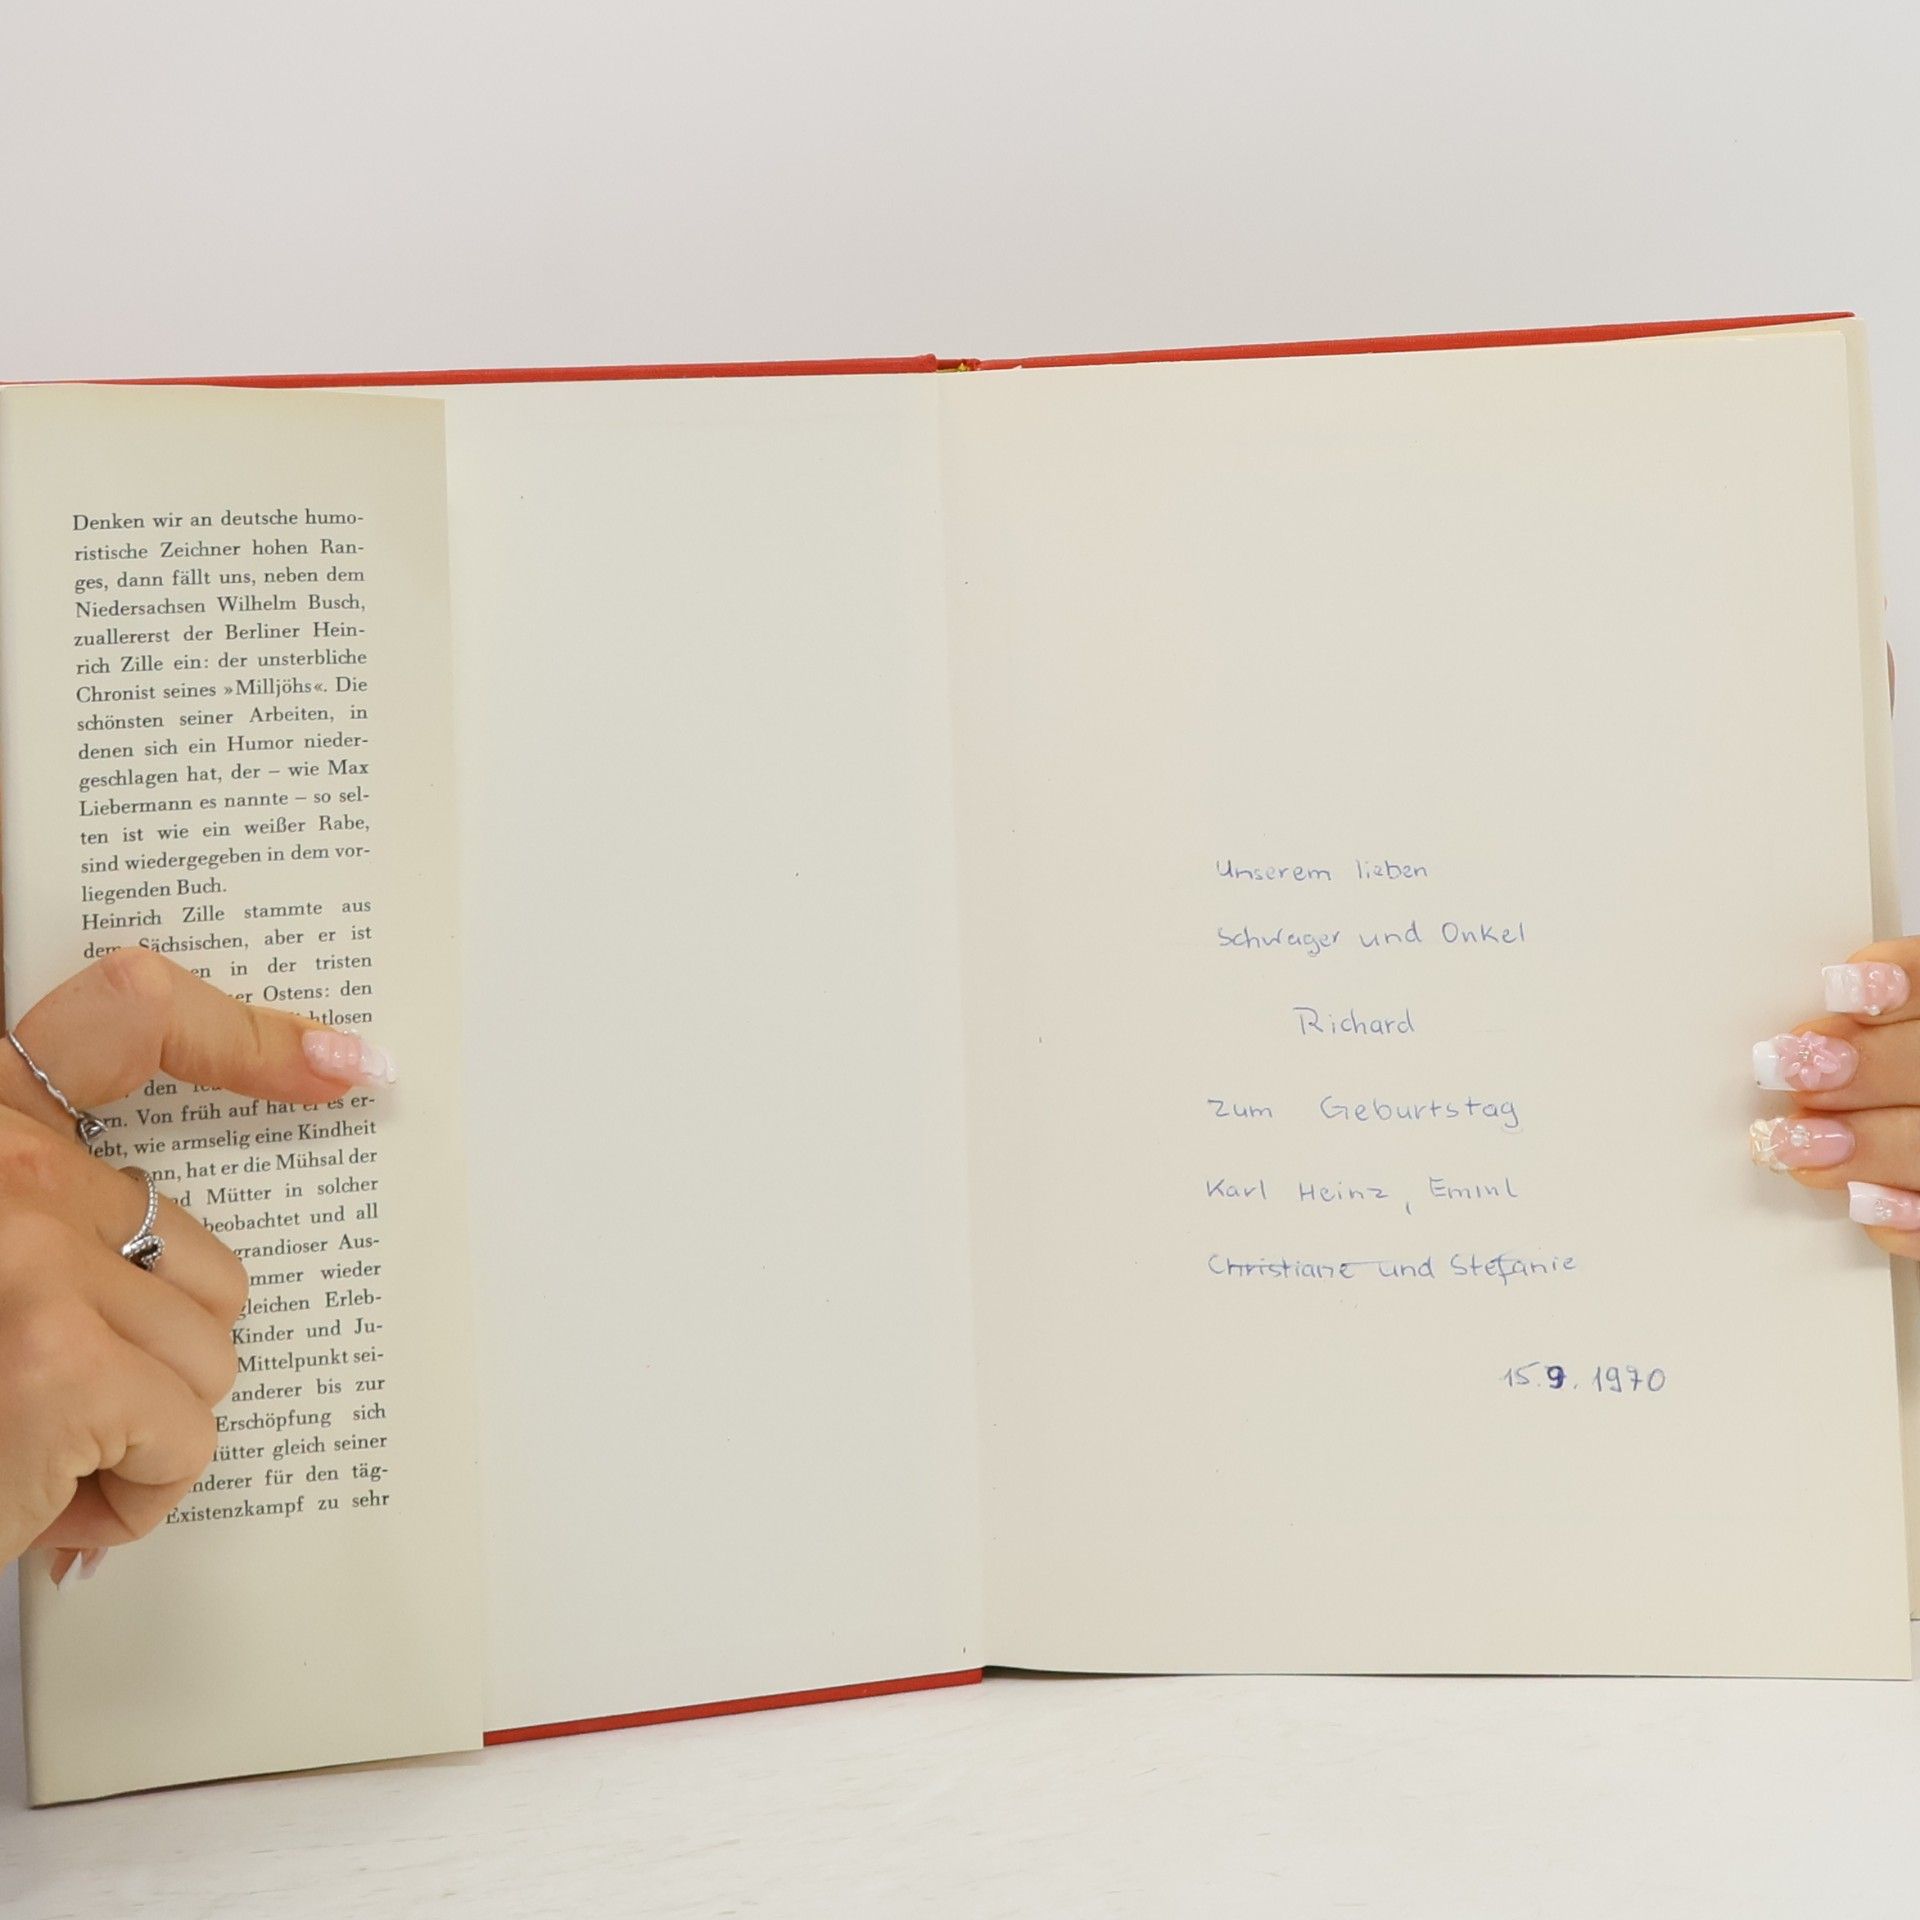 Denken wir an deutsche humo-
ristische Zeichner hohen Ran-
ges, dann fällt uns, neben dem
Niedersachsen Wilhelm Busch,
zuallererst der Berliner Hein-
rich Zille ein: der unsterbliche
Chronist seines »Milljöhs«. Die
schönsten seiner Arbeiten, in
denen sich ein Humor nieder-
geschlagen hat, der – wie Max
Liebermann es nannte – so sel-
ten ist wie ein weißer Rabe,
sind wiedergegeben in dem vor-
liegenden Buch.
Heinrich Zille stammte aus
dem Sächsischen, aber er ist
in der tristen
Ostens: den
den
Von früh auf hat er es er-
lebt, wie armselig eine Kindheit
hat er die Mühsal der
Mütter in solcher
beobachtet und all
grandioser Aus-
wieder
gleichen Erleb-
Kinder und Ju-
Mittelpunkt sei-
anderer bis zur
Erschöpfung sich
gleich seiner
für den täg-
Existenzkampf zu sehr
Unserem lieben
Schwager und Onkel
Richard
zum Geburtstag
Karl Heinz,
Christiane und Stefanie
15.9.1970